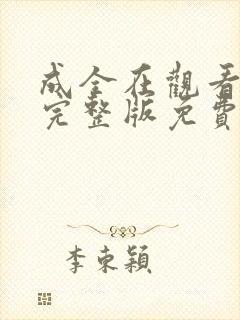 成全在觀看
完整版免費
李東穎